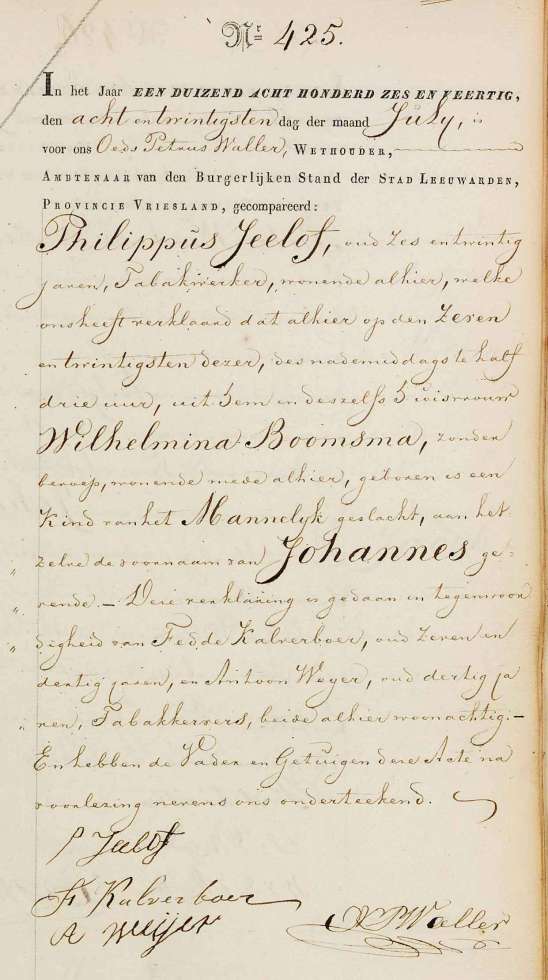 Nr 425.
In het Jaar EEN DUIZEND ACHT HONDERD ZES EN VEERTIG,
den acht en twintigsten dag der maand July, is
voor ons Oeds Petrus Waller, WETHOUDER,
AMBTENAAR van den Burgerlijken Stand der STAD LEEUWARDEN,
PROVINCIE VRIESLAND, gecompareerd:
Philippus Jeelof, oud zes en twintig
jaren, Tabakwerker, wonende alhier, welke
ons heeft verklaard dat alhier op den zeven
en twintigsten dezer, des nademiddags te half
drie uur, uit hem en deszelfs huisvrouw
Wilhelmina Boomsma, zonder
beroep, wonende mede alhier, geboren is een
Kind van het Mannelyk geslacht, aan het-
" zelve de voornaam van Johannes ge-
" vende. – Deze verklaring is gedaan in tegenwoor
" digheid van Fedde Kalverboer, oud zeven en
dertig jaren, en Antoon Weyer, oud dertig ja
" ren, Tabakkervers, beide alhier woonachtig. –
En hebben de Vader en Getuigen deze Acte na
voorlezing nevens ons onderteekend.
P Jeelof
F Kalverboer
A Weijer
O P Waller